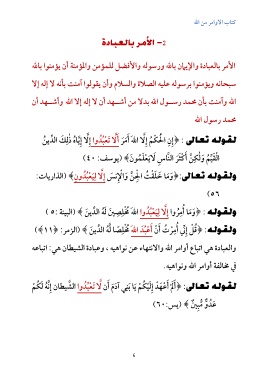 كتاب الأوامر من الله
2- الأمر بالعبادة
الأمر بالعبادة والإيمان بالله ورسوله والأفضل للمؤمن والمؤمنة أن يؤمنوا بالله
سبحانه ويؤمنوا برسوله عليه الصلاة والسلام وأن يقولوا آمنت بأنه لا إله إلا
الله وآمنت بأن محمد رسول الله بدلا من أشهد أن لا إله إلا الله وأشهد أن
محمد رسول الله
لقوله تعالى : ﴿إِنِ الْحُكْمُ إِلَّا لِلَّهِ أَمَرَ أَلَّا تَعْبُدُوا إِلَّا إِيَّاهُ ذَلِكَ الدِّينُ
الْقَيِّمُ وَلَكِنَّ أَكْثَرَ النَّاسِ لَا يَعْلَمُونَ﴾ (يوسف: ٤٠)
ولقوله تعالى: ﴿وَمَا خَلَقْتُ الْجِنَّ وَالْإِنسَ إِلَّا لِيَعْبُدُونِ﴾ (الذاريات:
٥٦)
ولقوله : ﴿وَمَا أُمِرُوا إِلَّا لِيَعْبُدُوا اللَّهَ مُخْلِصِينَ لَهُ الدِّينَ ﴾ (البينة :٥ )
ولقوله: ﴿قُلْ إِنِّي أُمِرْتُ أَنْ أَعْبُدَ اللَّهَ مُخْلِصًا لَهُ الدِّينَ ﴾ (الزمر: ﴿١١﴾)
والعبادة هي اتباع أوامر الله والانتهاء عن نواهيه ، وعبادة الشيطان هي: اتباعه
في مخالفة أوامر الله ونواهيه.
لقوله تعالى: ﴿أَلَمْ أَعْهَدْ إِلَيْكُمْ يَا بَنِي آدَمَ أَن لَّا تَعْبُدُوا الشَّيْطَانَ إِنَّهُ لَكُمْ
عَدُوٌّ مُّبِينٌ ﴾ (يس:٦٠)